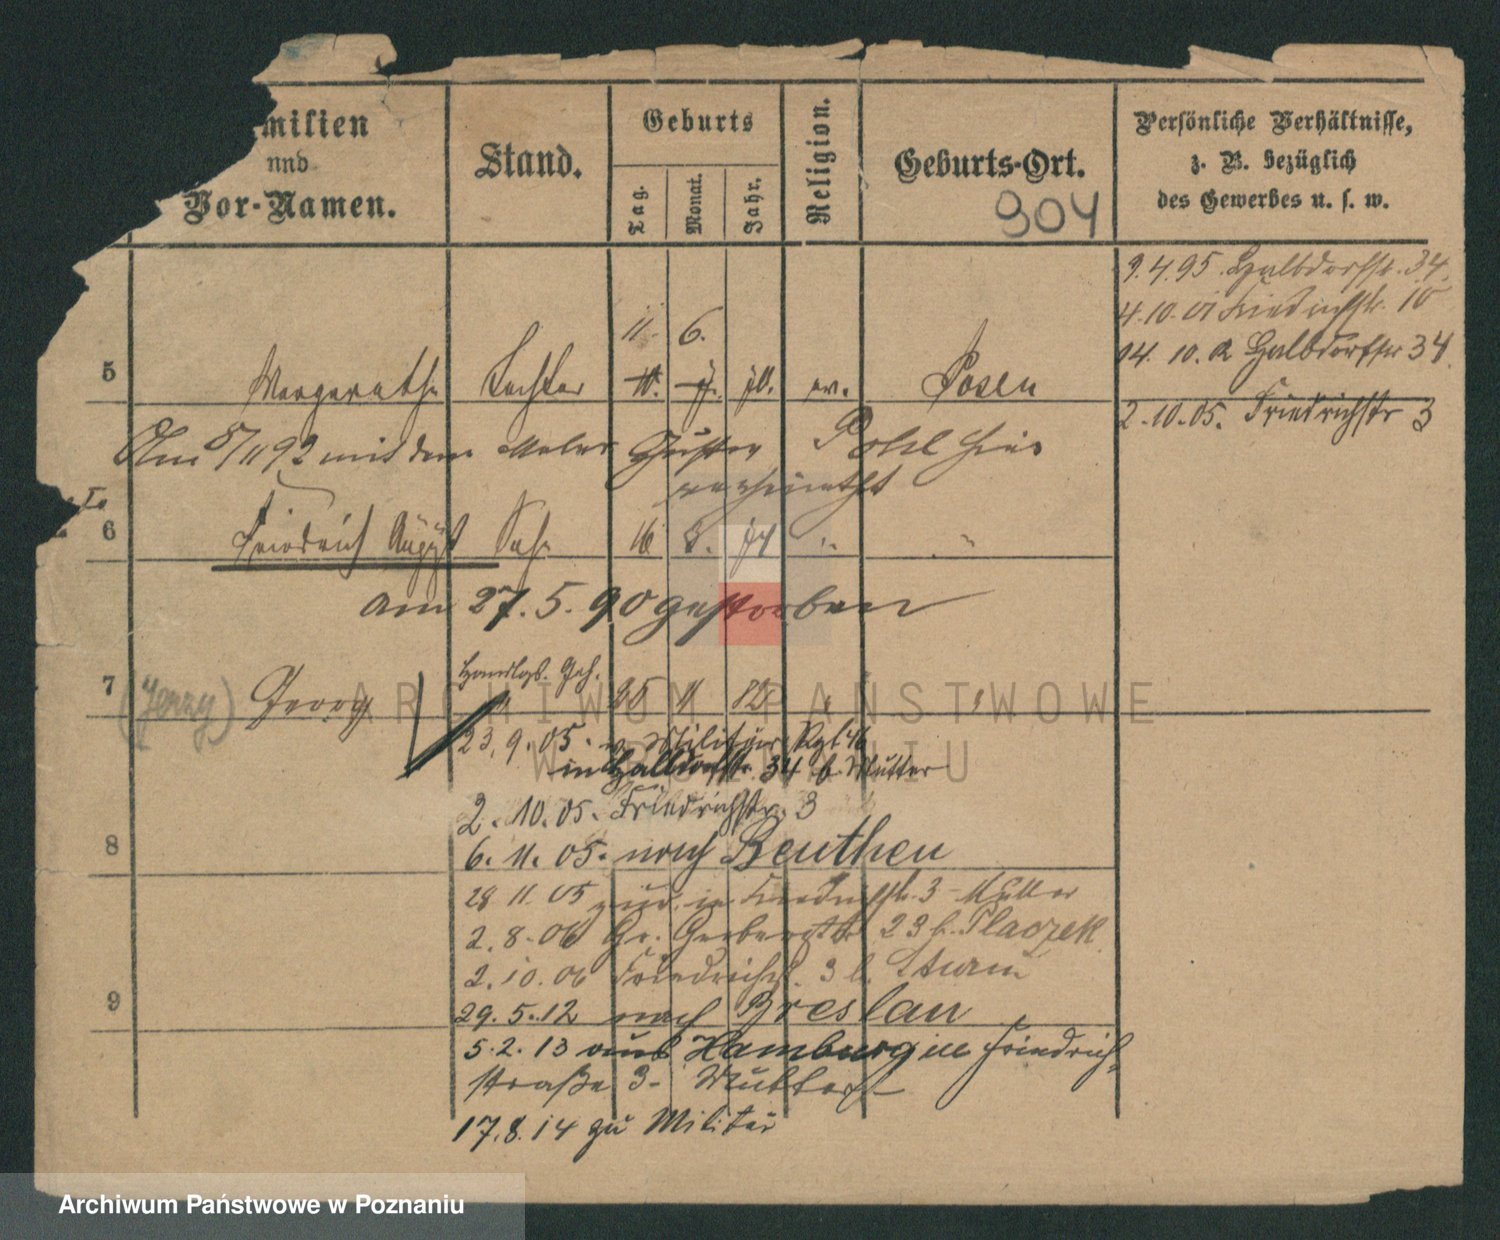 milien
und
Vor-Namen.
Stand.
Geburts
Tag.
Monat.
Jahr.
Religion.
Geburts-Ort.
904
Persönliche Verhältnisse,
z. B. bezüglich
des Gewerbes u. s. w.
9.4.95. Halbdorfstr. 34.
4.10.01 Friedrichstr. 10
04. 10. 02 Halbdorfstr 34.
2.10.05. Friedrichstr 3
11. 6.
5 Margarethe Tochter 10. 7. 70. ev. Posen
Am 5/11 92 mit dem Maler Gustav Pohl hier
verheirathet
6 Friedrich August Sohn 16 8. 74 " "
am 27.5.90 gestorben
Handlgs. Geh.
7 (Jerzy) Georg " 25 11 82 " "
23.9.05. v. Militär Rgt 46
in Halbdorfstr. 34 b. Mutter
2.10.05. Friedrichstr. 3
8
6.11.05. nach Beuthen
28 11. 05 zur. in Friedrichstr. 3 Mutter
2.8.06 Gr. Gerberstr 23 b. Placzek
2.10.06 Friedrichst. 3 b. Sturm
9
29.5.12 nach Breslau
5.2.13 aus Hamburg in Friedrich-
straße 3- Mutter-
17.8.14 zu Militär
ARCHIWUM PAŃSTWOWE
W POZNANIU
Archiwum Państwowe w Poznaniu